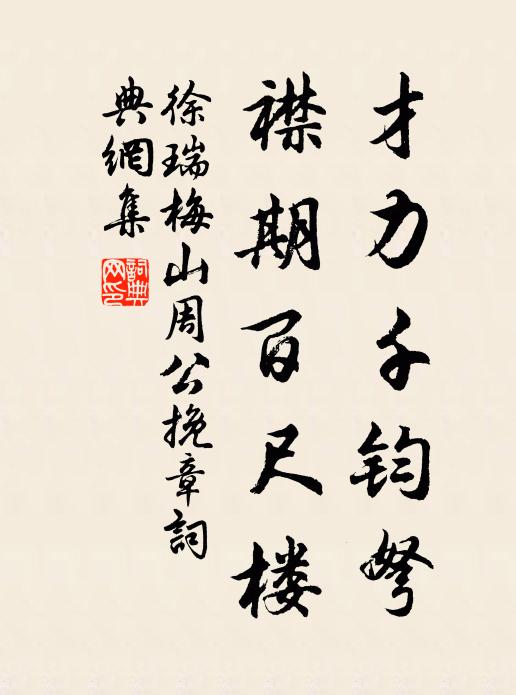 才力千钧弩
襟期百尺楼
徐瑞梅山周公挽章詞
典網集
詞典
网印